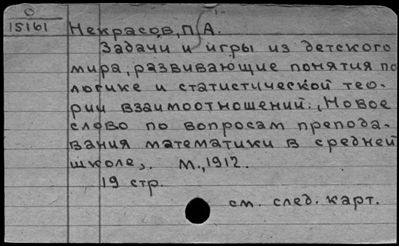 0
15161
Некрасов, П. А.
Задачи и игры из детского
мира, развивающие понятия по
логике и статистической тео-
рии взаимоотношений: „Новое
слово по вопросам препода-
вания математики в средней
школе„. М., 1912.
19 стр.
см. след. карт.